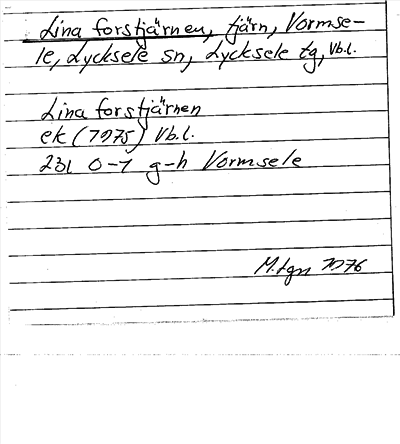 Lina forstjärnen, tjärn, Vormse-
le, Lycksele sn, Lycksele tg, Vb.l.
Lina forstjärnen
ek (1975) Vb.l.
23L 0-1 g-h Vormsele
1976